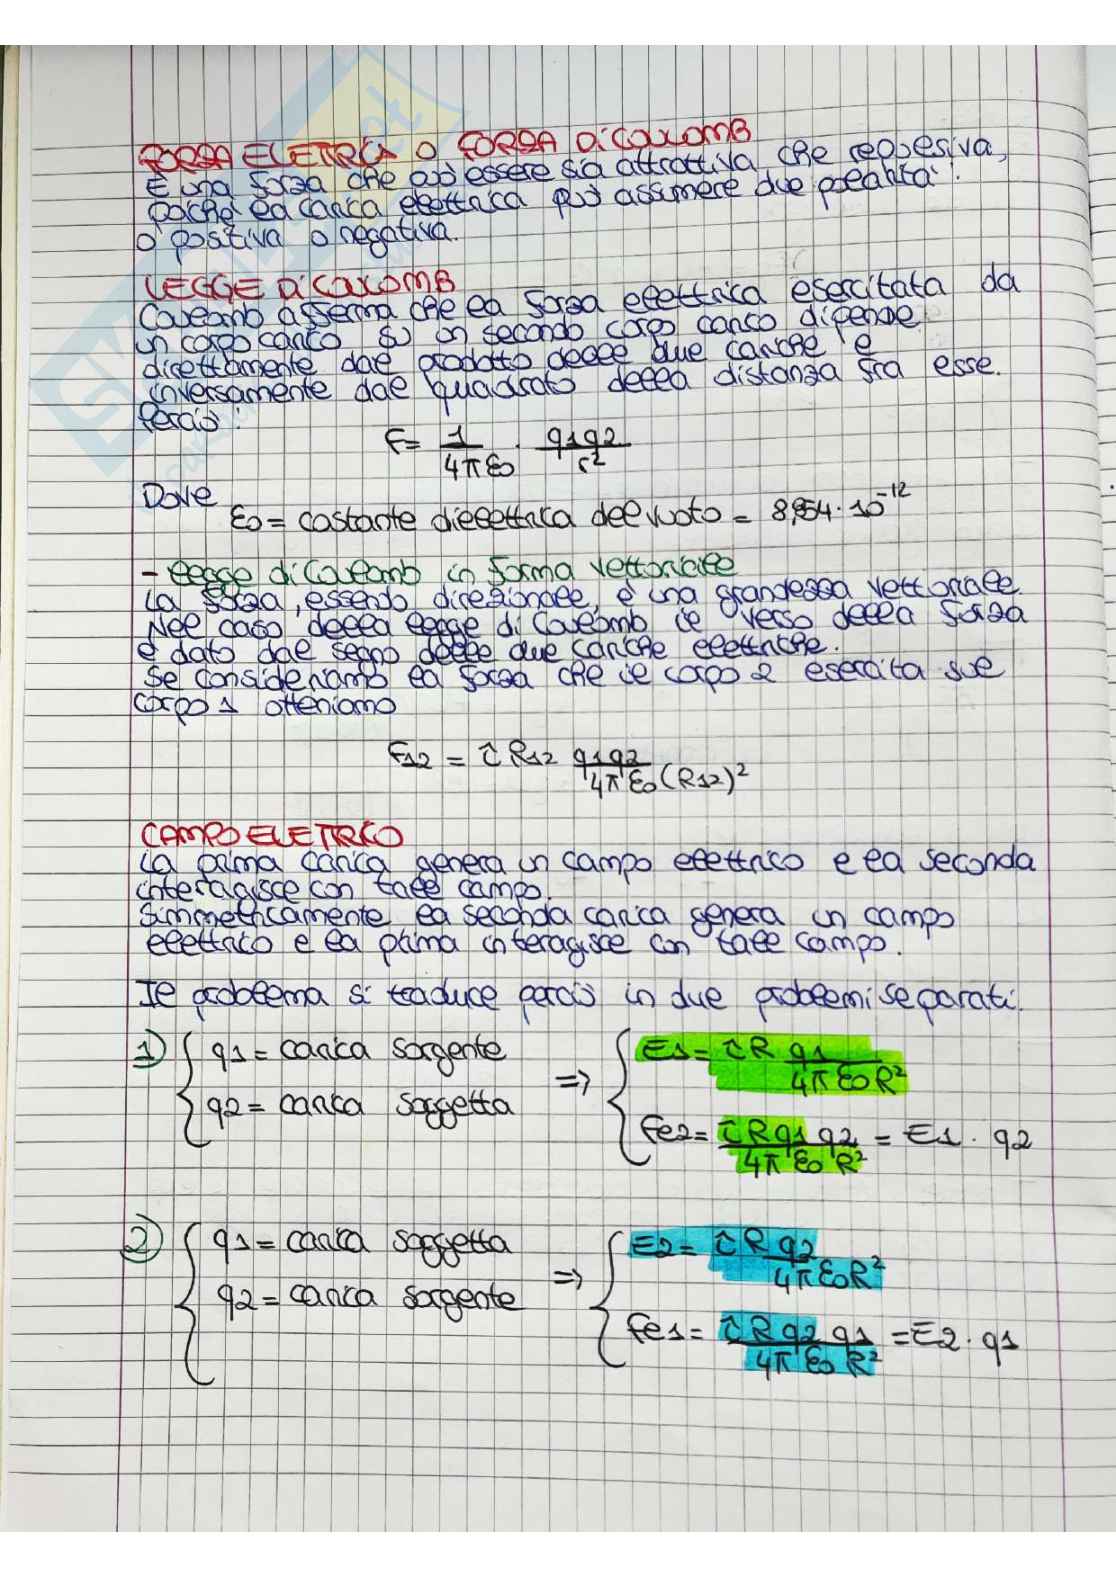 FORZA ELETRICA O FORZA DI COULOMB
È una forza che può essere sia attrattiva che repulsiva,
poiché la carica elettrica può assumere due polarità:
o positiva o negativa.
LEGGE DI COULOMB
Coulomb afferma che la forza elettrica esercitata da
un corpo carico su un secondo corpo carico dipende
direttamente dal prodotto delle due cariche e
inversamente dal quadrato della distanza fra esse.
Perciò:
F = 1/4πε0 · q1q2/r²
Dove
ε0 = costante dielettrica del vuoto = 8,854 · 10⁻¹²
- legge di Coulomb in forma vettoriale
La forza, essendo direzionale, è una grandezza vettoriale.
Nel caso della legge di Coulomb il verso della forza
è dato dal segno delle due cariche elettriche.
Se consideriamo la forza che il corpo 2 esercita sul
corpo 1 otteniamo
F12 = îR12 q1q2/4πε0(R12)²
CAMPO ELETTRICO
La prima carica genera un campo elettrico e la seconda
interagisce con tale campo.
Simmetricamente la seconda carica genera un campo
elettrico e la prima interagisce con tale campo.
Il problema si traduce perciò in due problemi separati.
1) { q1 = carica sorgente ⇒ { E1 = îR q1/4πε0R²
q2 = carica soggetta Fe2 = îR q1 q2/4πε0R² = E1 · q2
2) { q1 = carica soggetta ⇒ { E2 = îR q2/4πε0R²
q2 = carica sorgente Fe1 = îR q2 q1/4πε0R² = E2 · q1